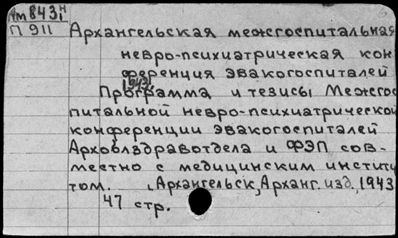 Ам843и
П911
Архангельская межгоспитальная
невро-психиатрическая кон
ференция эвакогоспиталей
1943г
Программа и тезисы Межгос
питальной невро-психиатрической
конференции эвакогоспиталей
Архоблздравотдела и ФЭП сов-
местно с медицинским институ
том. Архангельск, Арханг. изд, 1943
47 стр.